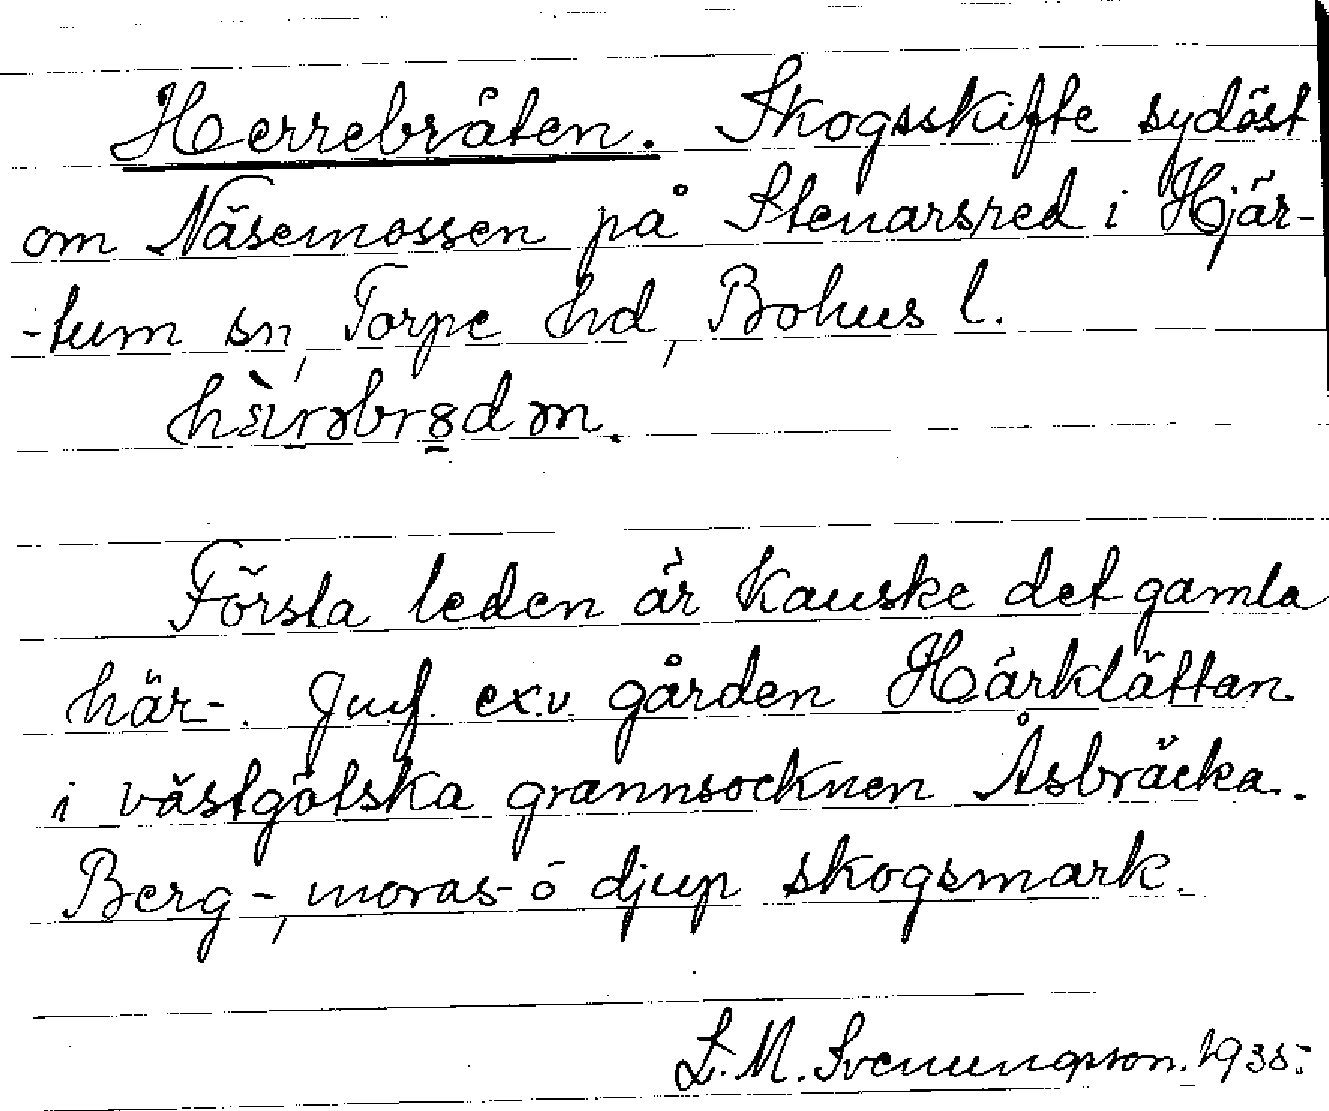 Herrebråten. Skogsskifte sydöst
om Näsemossen på Stenarsred i Hjär-
-tum sn, Torpe hd, Bohus l.
Första leden är kanske det gamla
här-. Jmf. ex.v. gården Härklättan
i västgötska grannsocknen Åsbräcka.
Berg-, moras- o djup skogsmark.
L. M. Svenungsson. 1935.